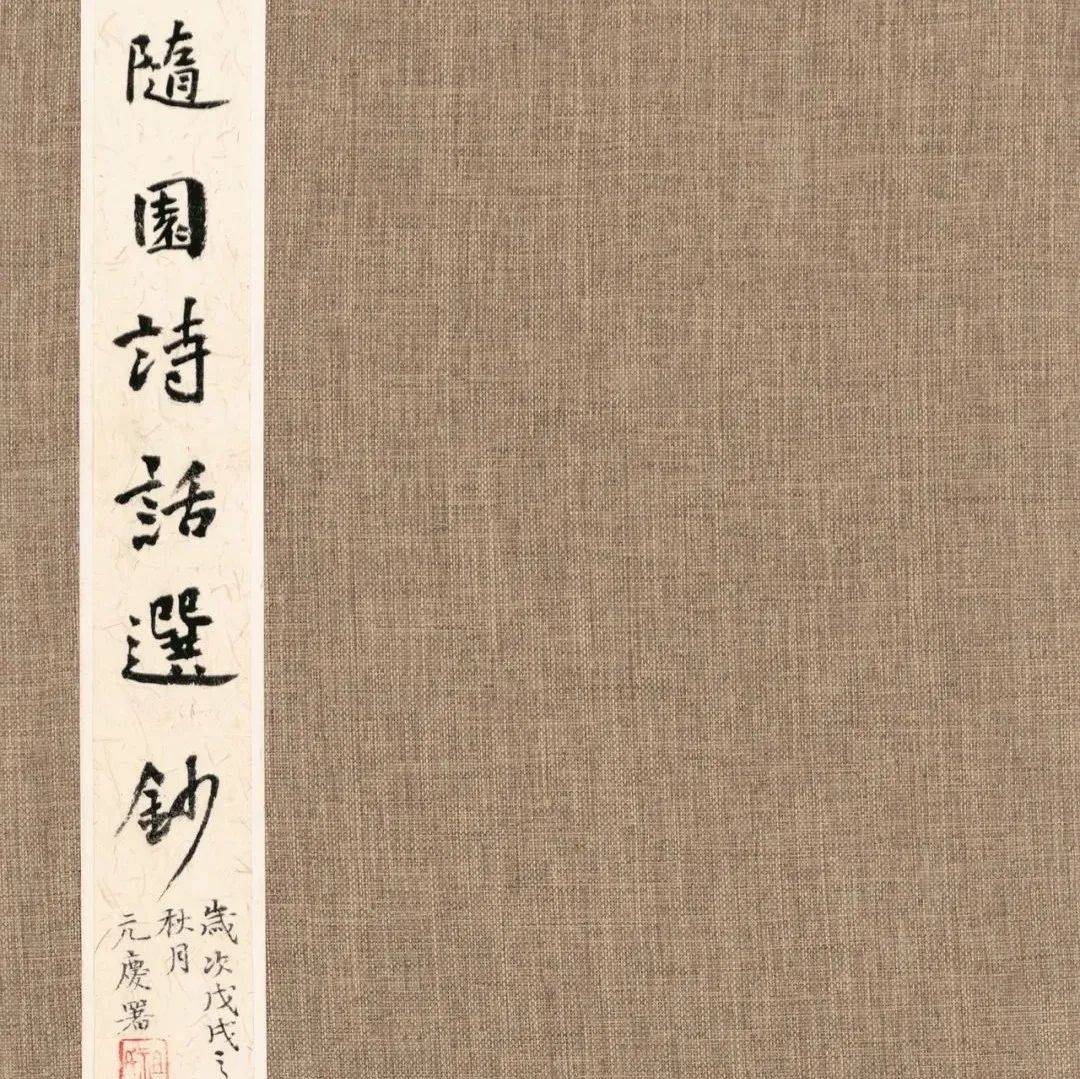 隨園詩話選鈔
歲次戊戌之
秋月
元慶署